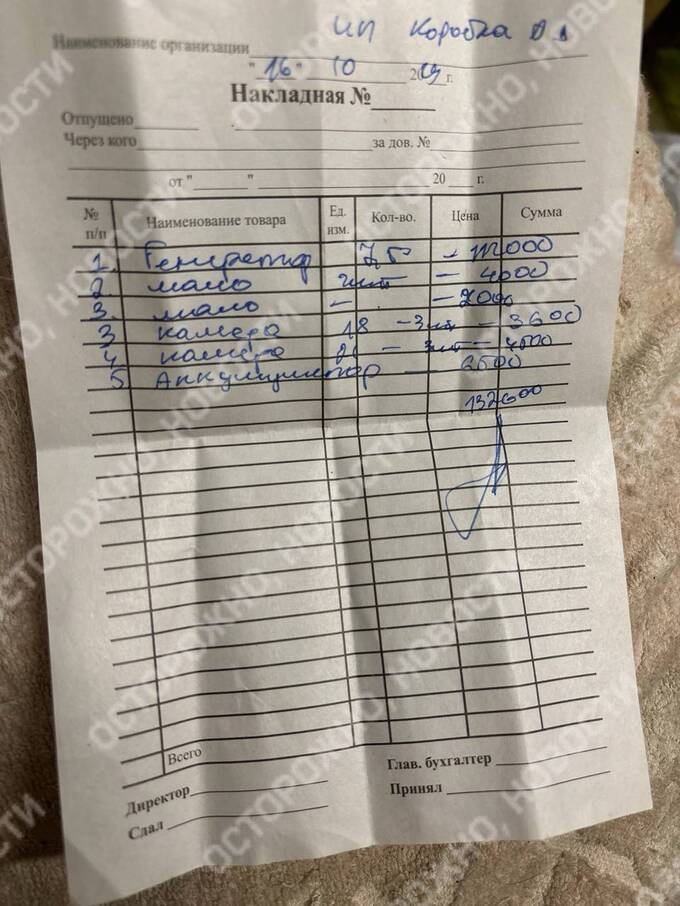 Наименование организации ИП Коробка В.
"16" 10 2019 г.
Накладная №
Отпущено
Через кого за дов. №
от " " 20 г.
№ п/п Наименование товара Ед. изм. Кол-во. Цена Сумма
1. Генератор
2 масло 2шт – 4000
3. масло – – 2000
3 камера 18 – 3шт – 3600
4 камера – 3шт –
5 Аккумулятор — 2500
132600
Всего
Директор Глав. бухгалтер
Сдал Принял
ОСТОРОЖНО, НОВОСТИ